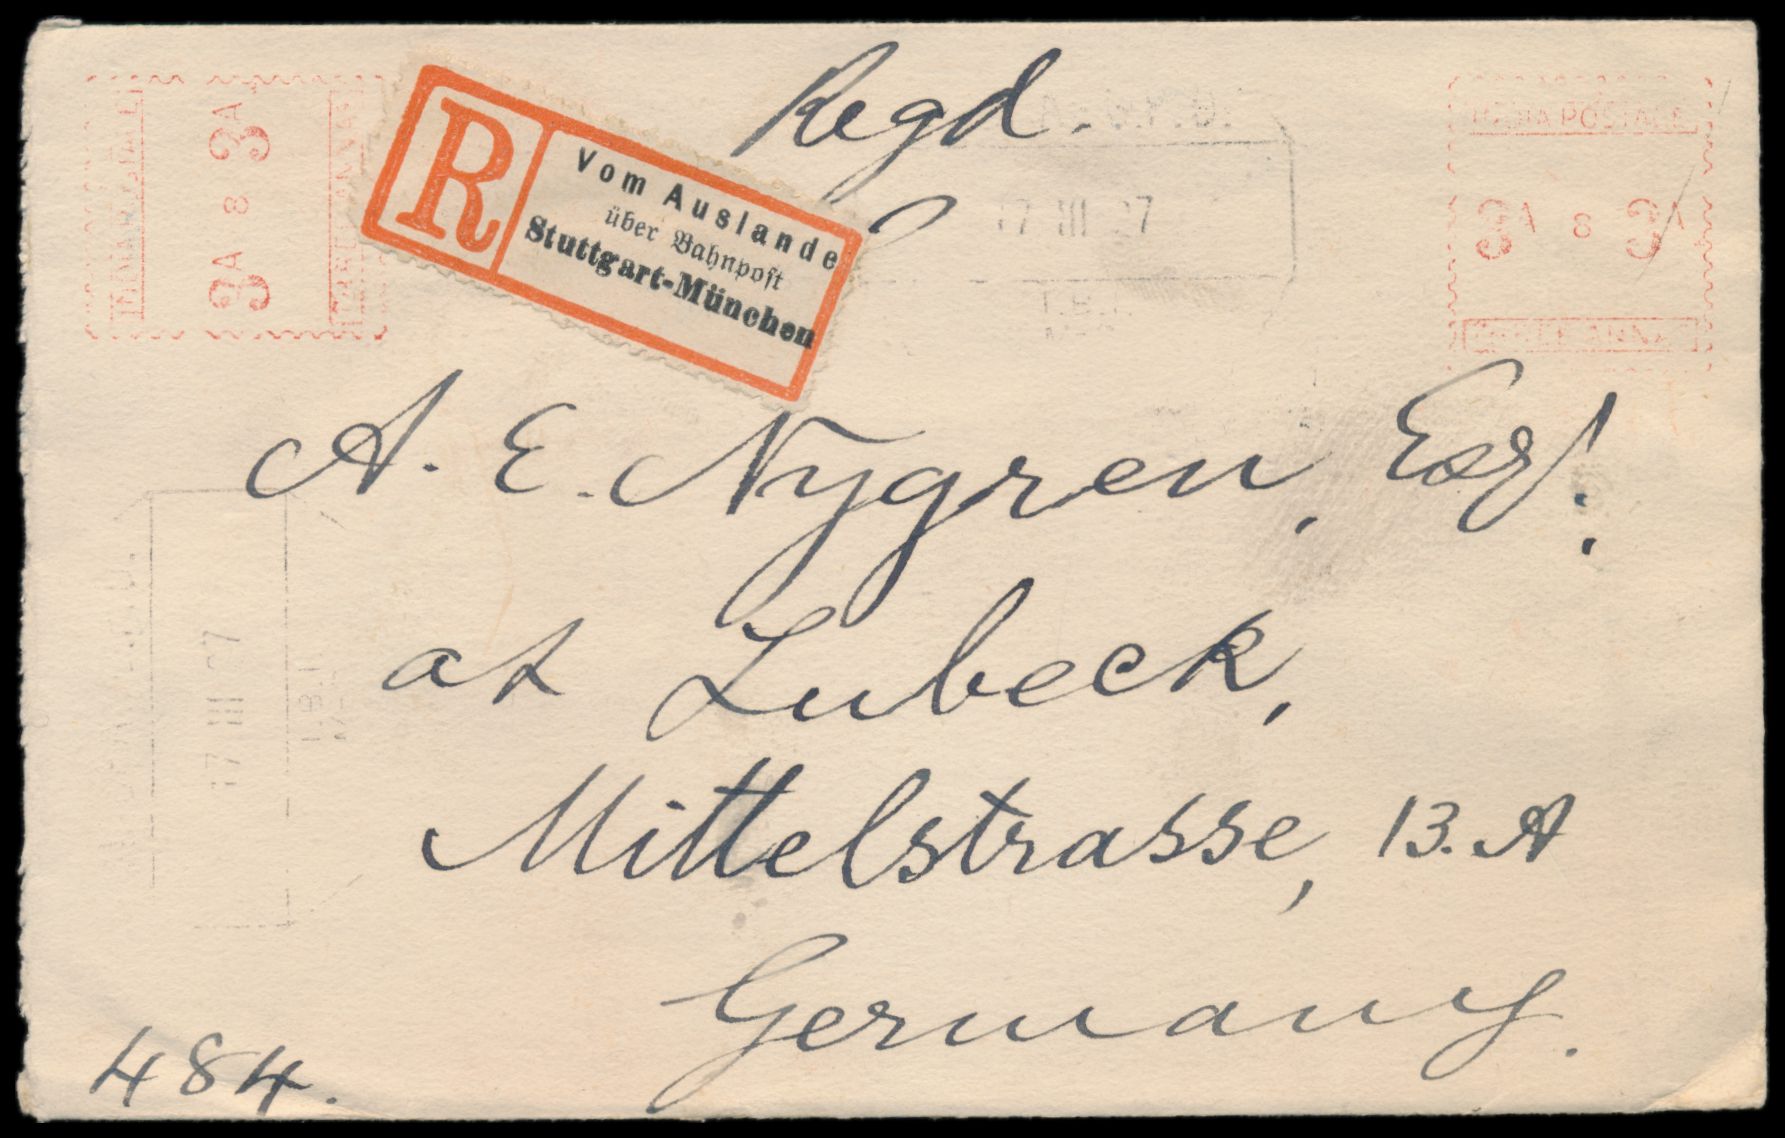 Regd.
R
Vom Auslande
über Bahnpost
Stuttgart-München
INDIA POSTAGE
3A 8 3A
THREE ANNAS
INDIA POSTAGE
3A 8 3A
THREE ANNAS
17 III 27
17 III 27
A. E. Nygren, Esq!.,
at Lubeck,
Mittelstrasse, 13. A
Germany.
484.